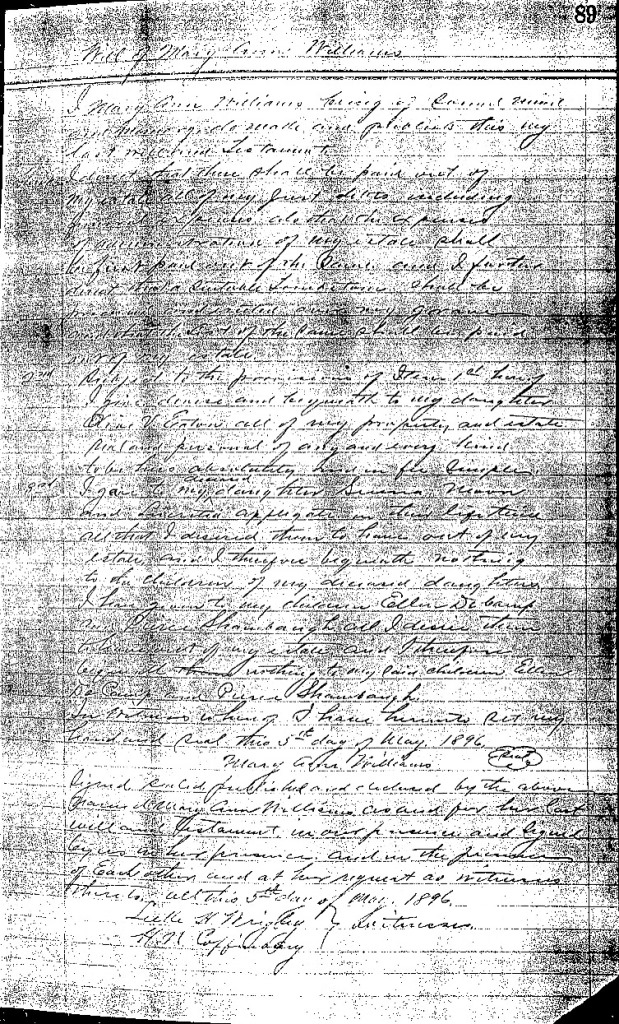 89
Will of Mary Ann Williams
I Mary Ann Williams being of Sound mind
and memory do make and publish this my
last will and Testament
I direct that there shall be paid out of
my estate all of my Just debts including
funeral expenses also that the expenses
of administration of my estate shall
be first paid out of the Same and I further
direct that a Suitable Tombstone shall be
erected over my grave
and that the cost of the same shall be paid
out of my estate
2nd Subject to the provisions of Item 1st hereof
I give devise and bequeath to my daughter
V. Eaton all of my property and estate
real and personal of any and every kind
to be hers absolutely and in fee Simple
deceased
3rd I gave to my daughters Moon
and applegate in their lifetime
all that I desired them to have out of my
estate and I therefore bequeath nothing
to the children of my deceased daughters
I have given to my children Ellen DeCamp
and Pierce Shambaugh all I desire them
to have out of my estate and I therefore
bequeath nothing to my said children Ellen
DeCamp and Pierce Shambaugh
In Witness whereof I have hereunto set my
hand and seal this 5th day of May. 1896
Mary Ann Williams Seal
Signed sealed published and declared by the above
named Mary Ann Williams as and for her last
will and Testament in our presence and signed
by us in her presence and in the presence
of Each other and at her request as witnesses
thereto all this 5th day of May. 1896.
H. Wrigley } Witnesses.
H. N. Coffinberry